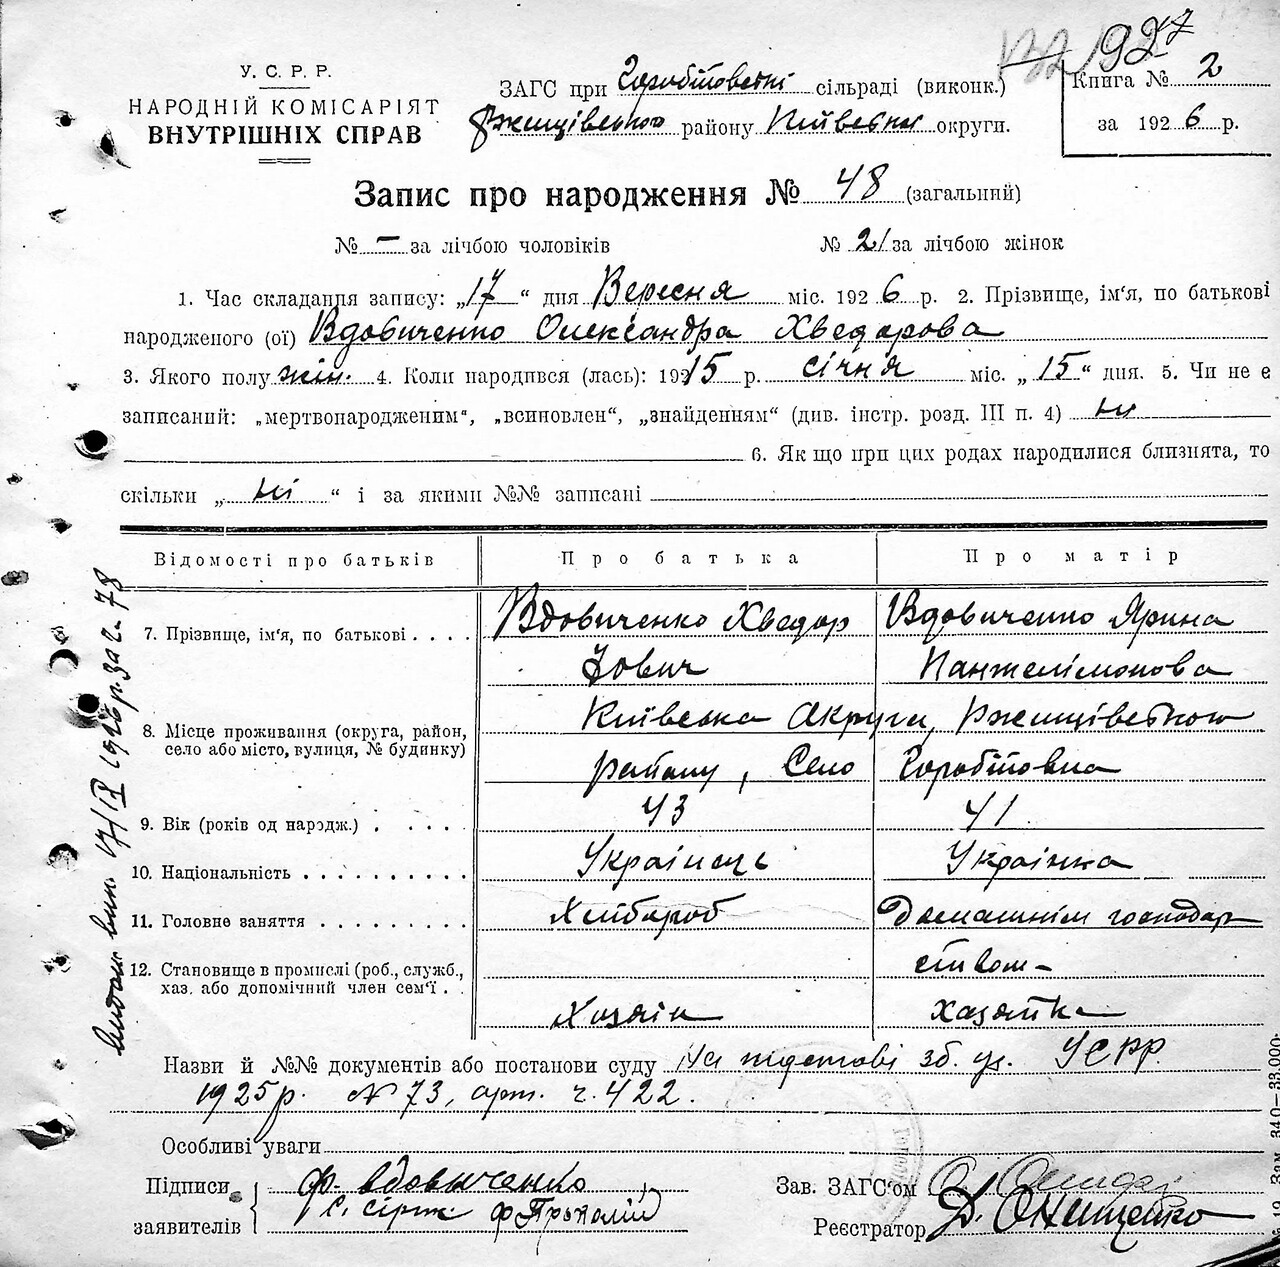 1927
У. С. Р. Р.
НАРОДНІЙ КОМІСАРІЯТ
ВНУТРІШНІХ СПРАВ
ЗАГС при сільраді (виконк.)
району округи.
Книга № 2
за 1926 р.
Запис про народження № 48 (загальний)
№ – за лічбою чоловіків № 21 за лічбою жінок
1. Час складання запису: „17“ дня Вересня міс. 1926 р. 2. Прізвище, ім'я, по батькові
народженого (ої) Вдовиченко Олександра Хведорова
3. Якого полу жін. 4. Коли народився (лась): 19215 р. січня міс. „15“ дня. 5. Чи не є
записаний: „мертвонародженим“, „всиновлен“, „знайденням“ (див. інстр. розд. III п. 4) ні
6. Як що при цих родах народилися близнята, то
скільки „ні“ і за якими №№ записані
Відомості про батьків Про батька Про матір
7. Прізвище, ім'я, по батькові . . . . Вдовиченко Хведор Вдовиченко Ярина
Пантелімонова
8. Місце проживання (округа, район,
село або місто, вулиця, № будинку)
Київська Округи,
району, Село
9. Вік (років од народж.) . . . . . 43 41
10. Національність . . . . . . . . . . Українець Українка
11. Головне заняття . . . . . . . . . Хлібороб Домашнім господар
ством –
12. Становище в промислі (роб., служб.,
хаз. або допомічний член сем'ї . .
Хазяін Хазяйка
Назви й №№ документів або постанови суду На підставі зб. уз. УСРР
1925 р. № 73, арт. ч. 422.
Особливі уваги
Підписи
заявителів
Ф. Вдовиченко
Зав. ЗАГС'ом
Реєстратор Д. Онищенко
17/IX 1926 р. за ч. 78